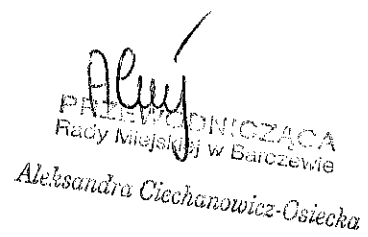 PRZEWODNICZĄCA
Rady Miejskiej w Barczewie
Aleksandra Ciechanowicz-Osiecka